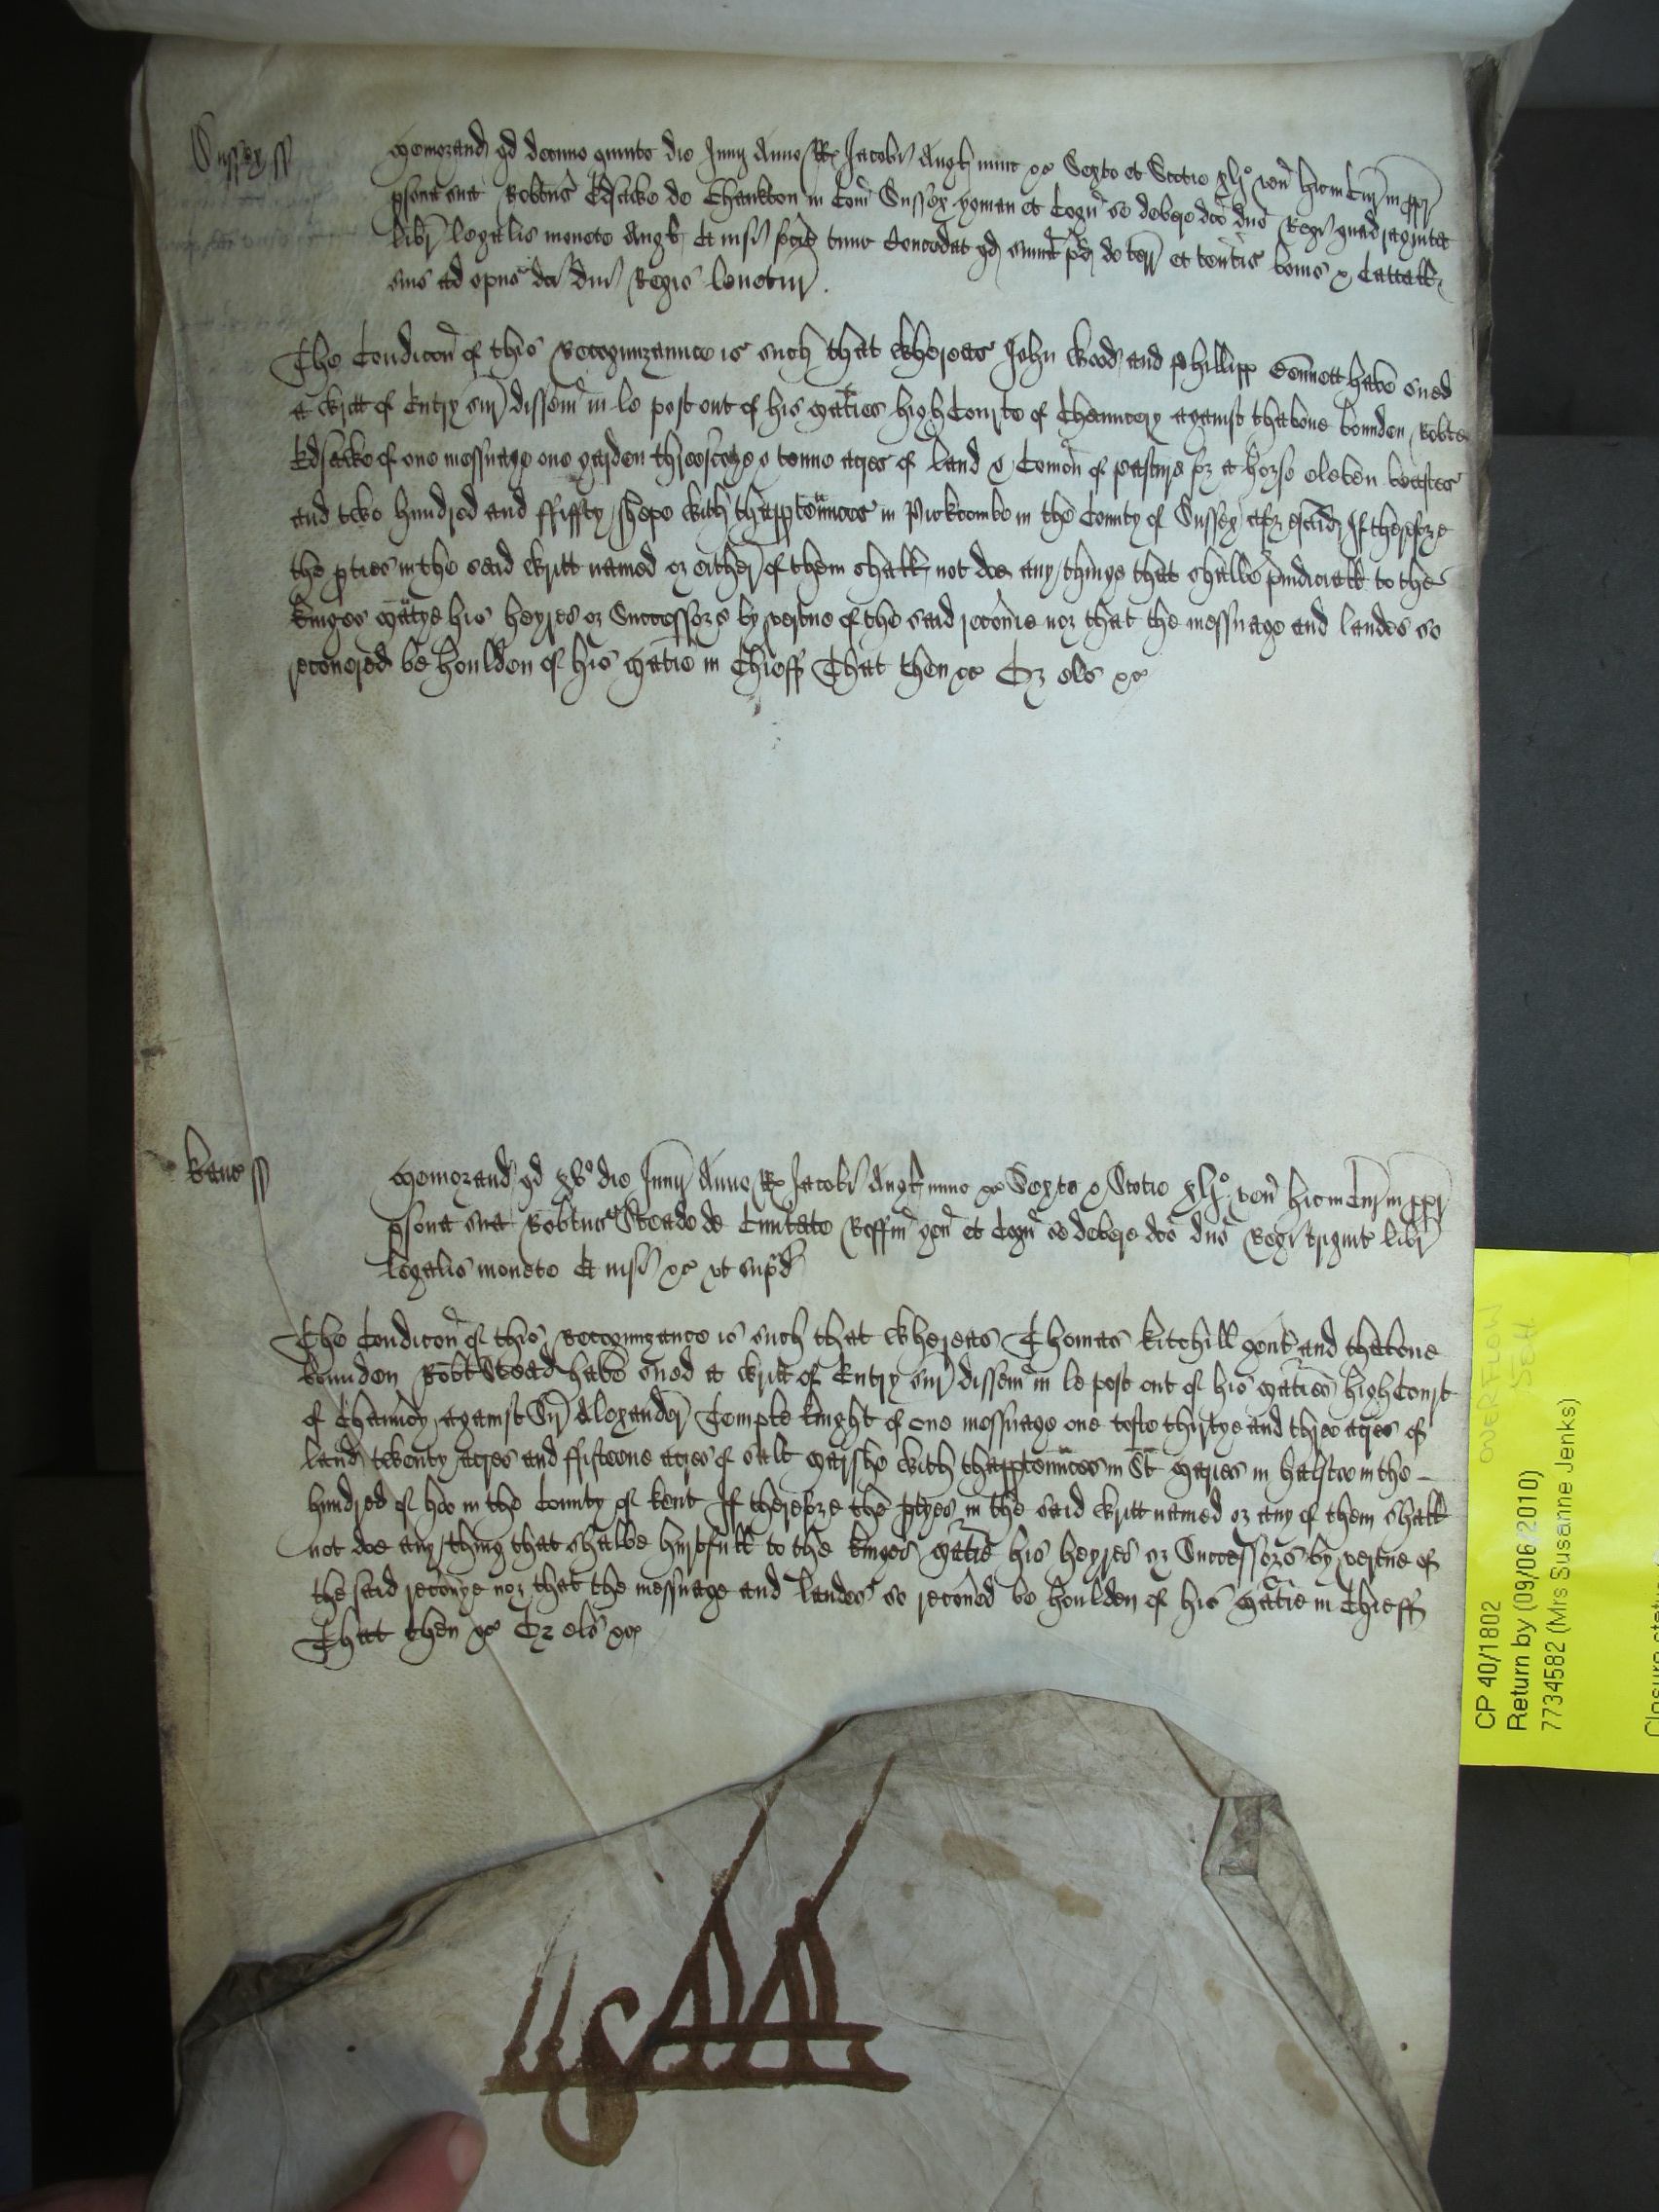 Sussex ss
Memorand qd decimo quinto die Junij Anno RRs Jacobi Angl nunc &c Sexto et Scotie xljo ven hic in Cur in ppr
psona sua Robtus Edsawe de Chankton in Com Sussex yoman et Cogn se debere dco dno Regi quadraginta
libr legalis monete Angl Et nisi fecit tunc Concedat qd sumat pd de terr et tentis bonis & Catall
suis ad opus dci dni Regis levetur.
The Condicon of this Recognizannce is such that Whereas John Wood and Phillipp Bennett have sued
a writt of Entry sur disseim in le post out of his Maties high Courte of Chauncery against thabove bounden Robte
Edsawe of one messuage one garden threescore & tenne acres of Land & Comon of pasture for a horse eleven beastes
and two hundred and ffiffty shepe with thapptennces in Pirkcombe in the County of Sussex aforesaid If therefore
the pties in the said writt named or either of them shall not doe any thinge that shalbe piudiciall to the
kinges Matye his heyres or Successors by vertue of the said recovie nor that the messuage and landes so
recovered be houlden of his Matie in Chieff That then &c Or els &c
Kanc ss
Memorand qd xvo die Junij Anno RRs Jacobi Angl nunc &c Sexto & Scotie xljo ven hic in Cur in ppr
psona sua Robtus Steade de Civitate Roffin gen et Cogn se debere dco dno Regi trigint libr
legalis monete Et nisi &c ut supd
The Condicon of this Recognizance is such that Whereas Thomas Kitchill gent and thabove
bounden Robt Stead have sued a writt of Entry sur disseim in le post out of his Maties high Court
of Chauncy against Sir Alexander Temple knight of one messuage one tofte thirtye and three acres of
land twenty acres and ffifteene acres of salt Marshe with thapptennces in St Maries in halstoe in the
hundred of hoo in the County of Kent If therefore the ptyes in the said writt named or any of them shall
not doe any thing that shalbe hurtfull to the kinges Matie his heyres or Successors by vertue of
the said recovye nor that the messuage and landes so recoved be houlden of his Matie in Chieff
That then &c Or els &c
OVERFLOW
CP 40/1802
Return by (09/06/2010)
7734582 (Mrs Susanne Jenks)